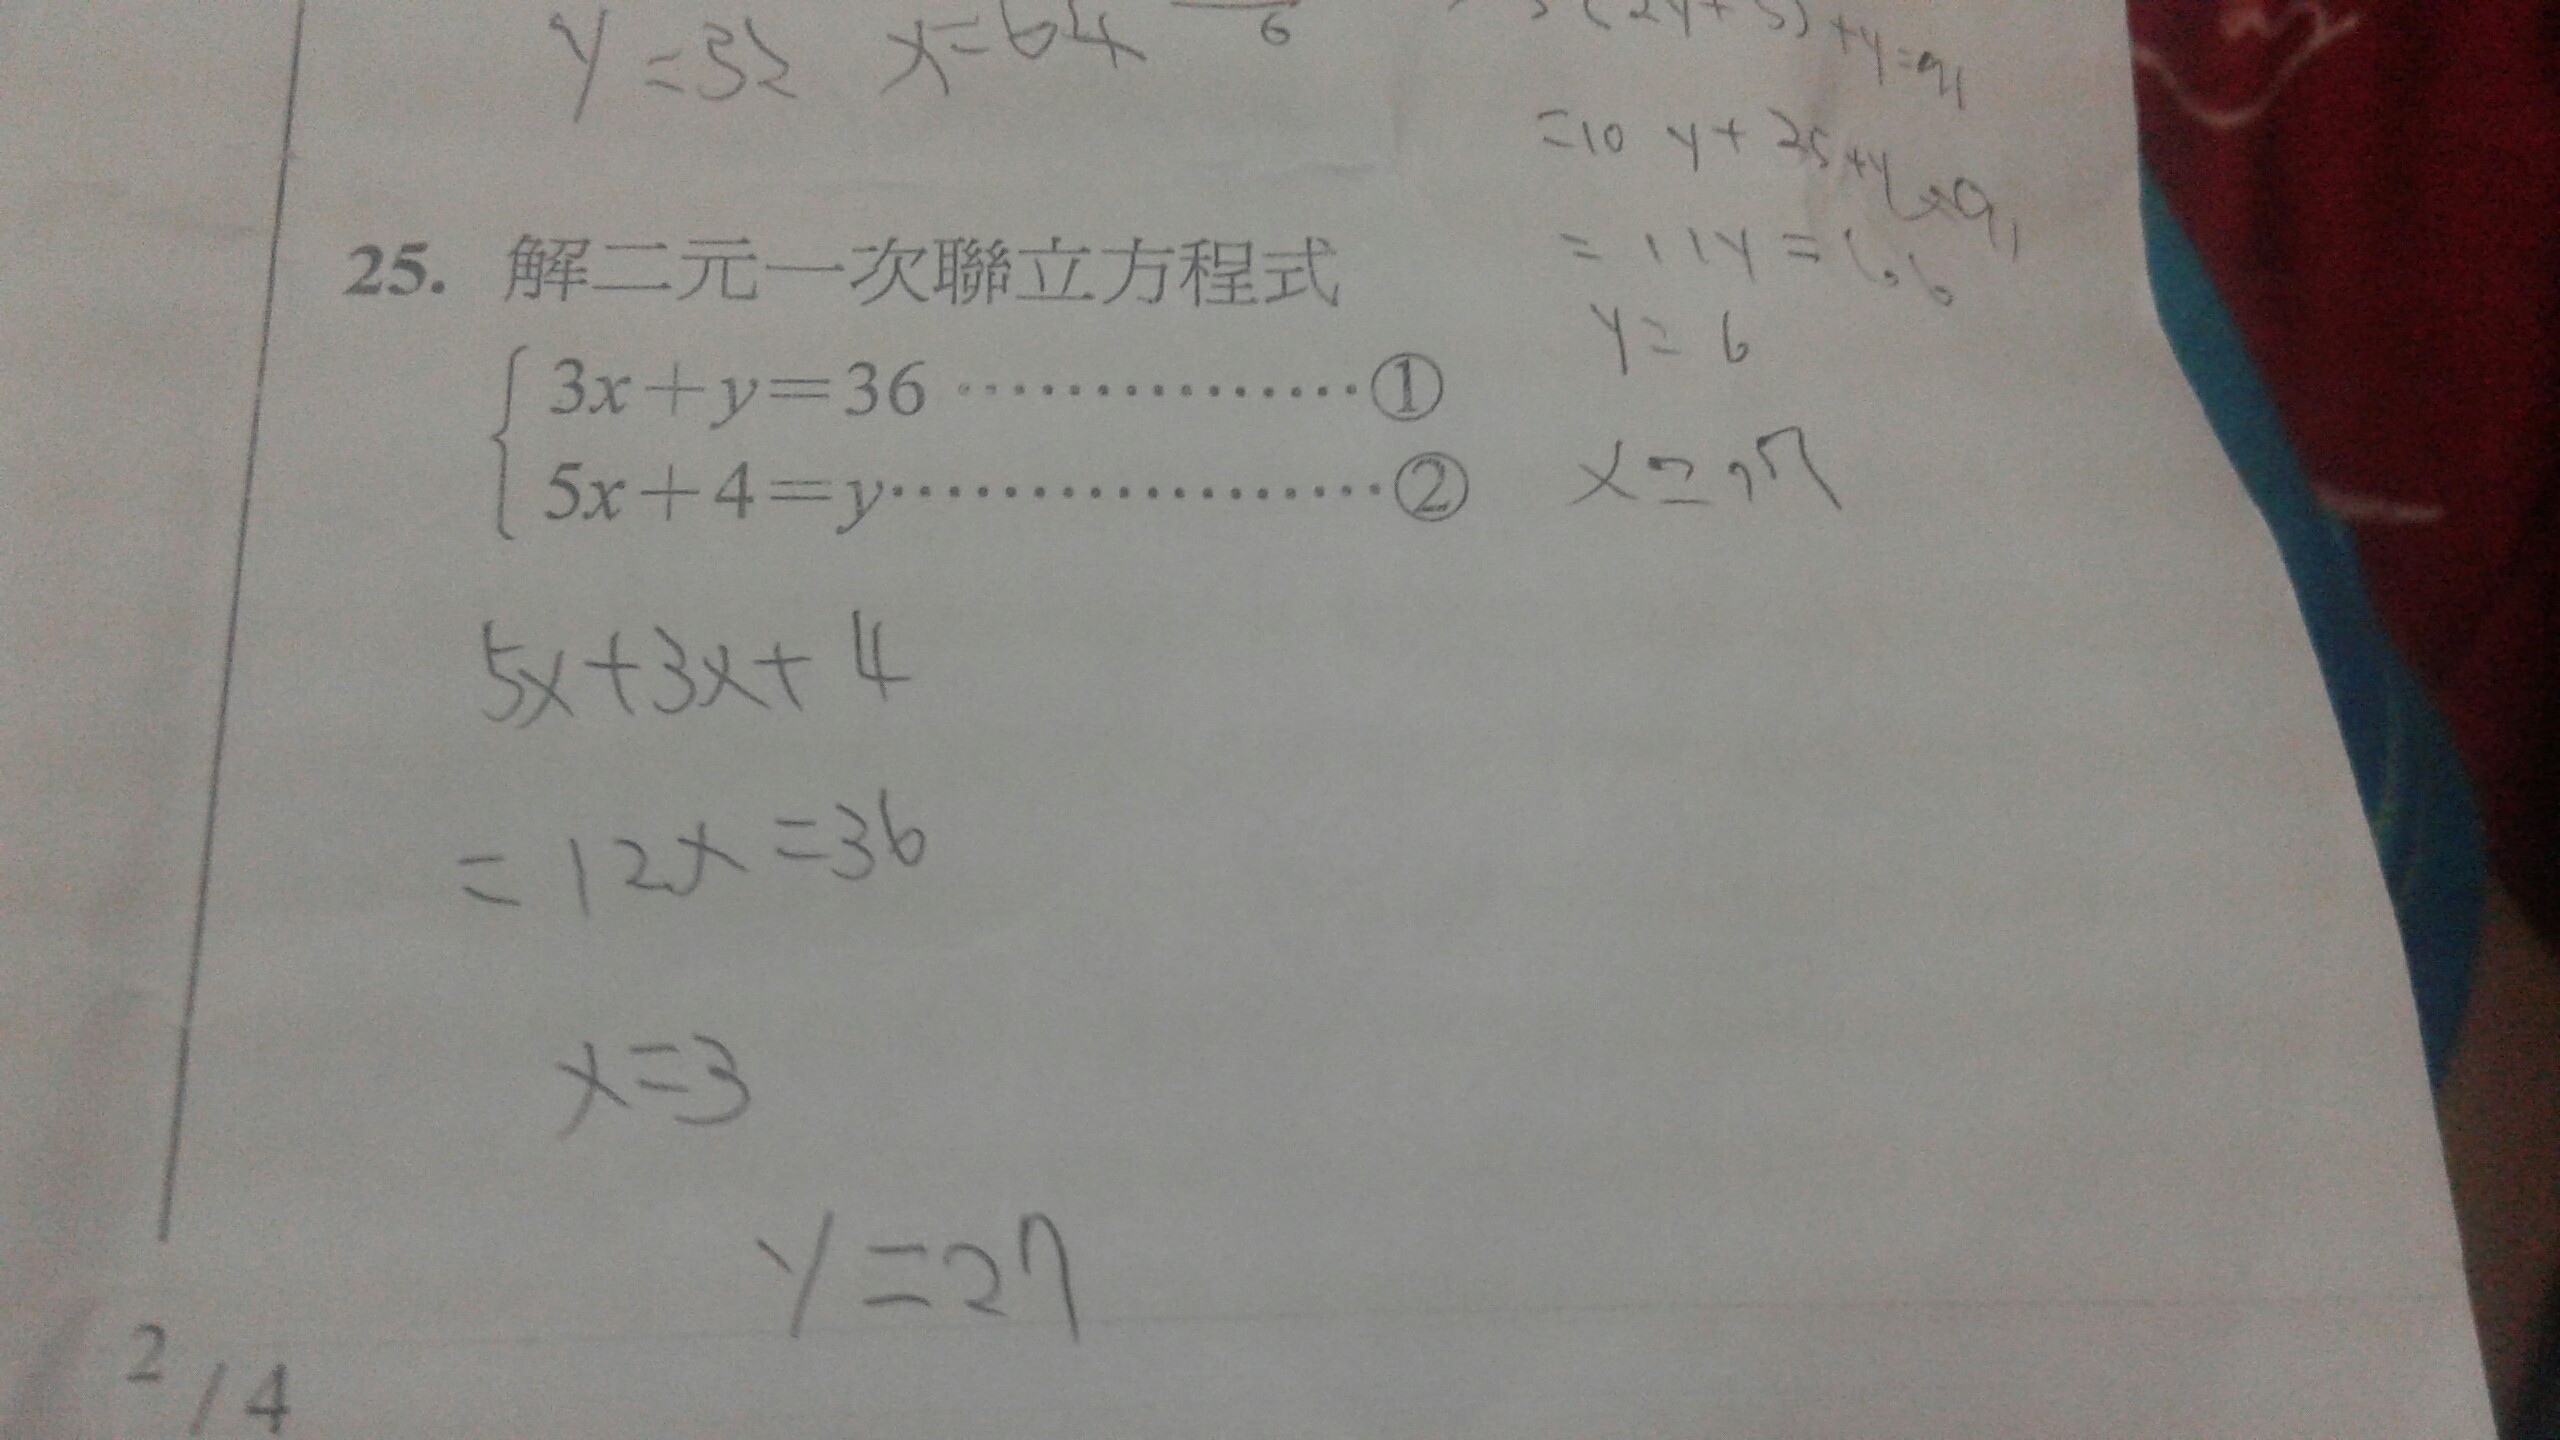 y=32 x=64
6
5(2y+5)+y=91
=10y+25+y=91
=11y=66
y=6
x=17
25. 解二元一次聯立方程式
3x+y=36 ················①
5x+4=y··················②
5x+3x+4
=12x=36
x=3
y=27
2/4